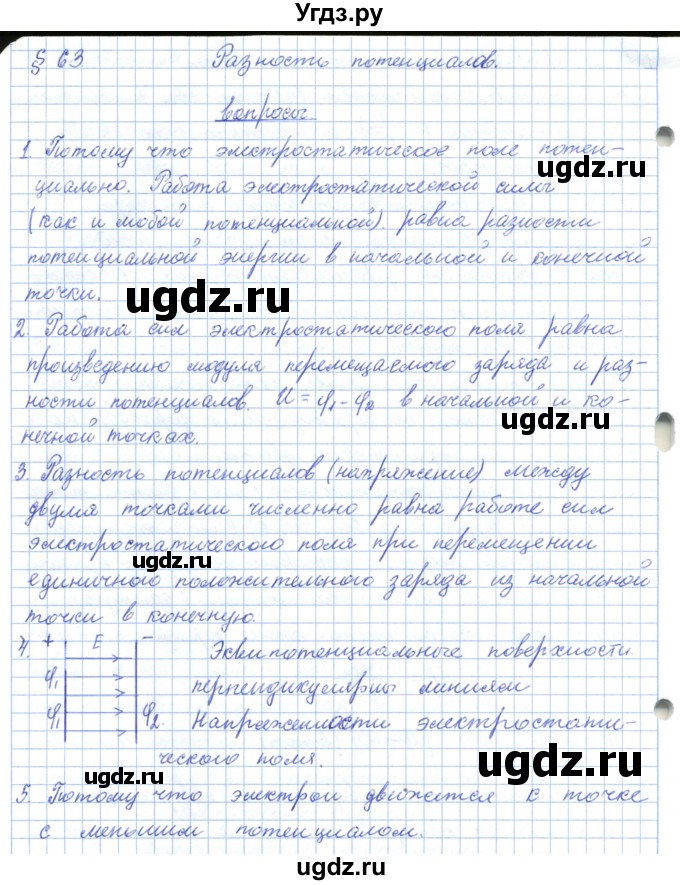 Угдз.ру
§ 63 Разность потенциалов.
Вопросы
1. Потому что электростатическое поле потен-
циально. Работа электростатической силы
(как и любой потенциальной). равна разности
потенциальной энергии в начальной и конечной
точки.
2. Работа сил электростатического поля равна
произведению модуля перемещаемого заряда и раз-
ности потенциалов. U = φ₁ - φ₂ в начальной и ко-
нечной точках.
3. Разность потенциалов (напряжение) между
двумя точками численно равна работе сил
электростатического поля при перемещении
единичного положительного заряда из начальной
точки в конечную.
4. + E - Эквипотенциальные поверхности
φ₁ перпендикулярны линиям
φ₁ φ₂. Напряженности электростати-
ческого поля.
5. Потому что электрон движется к точке
с меньшим потенциалом.
ugdz.ru
ugdz.ru
ugdz.ru
ugdz.ru
ugdz.ru
ugdz.ru
ugdz.ru
ugdz.ru
ugdz.ru